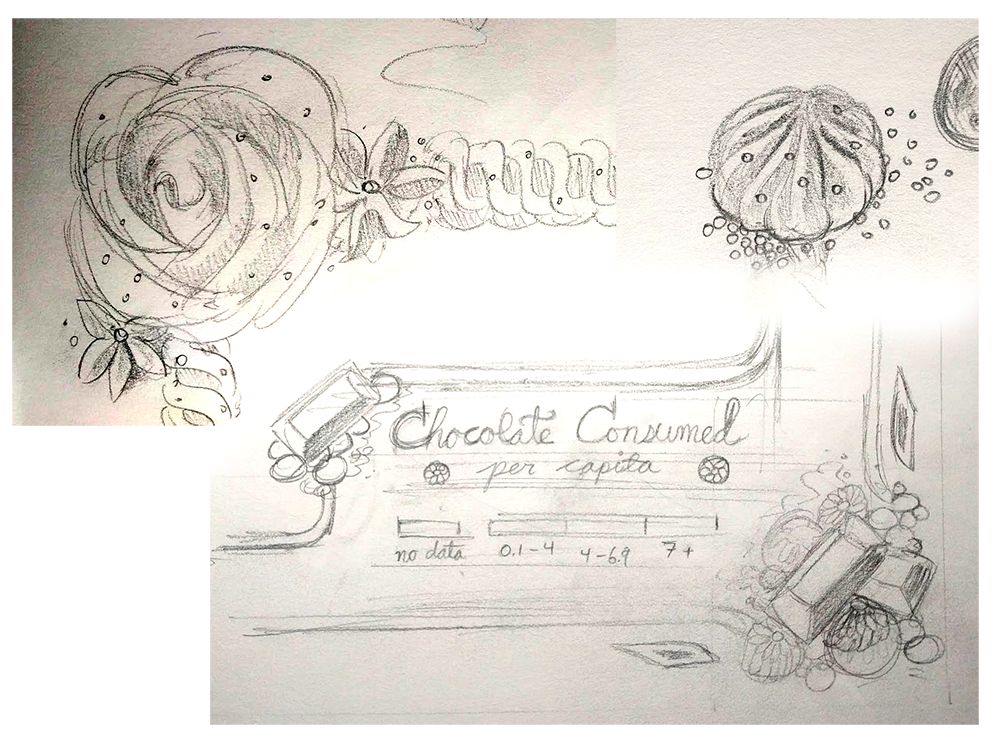 Chocolate Consumed
per capita
no data 0.1-4 4-6.9 7+